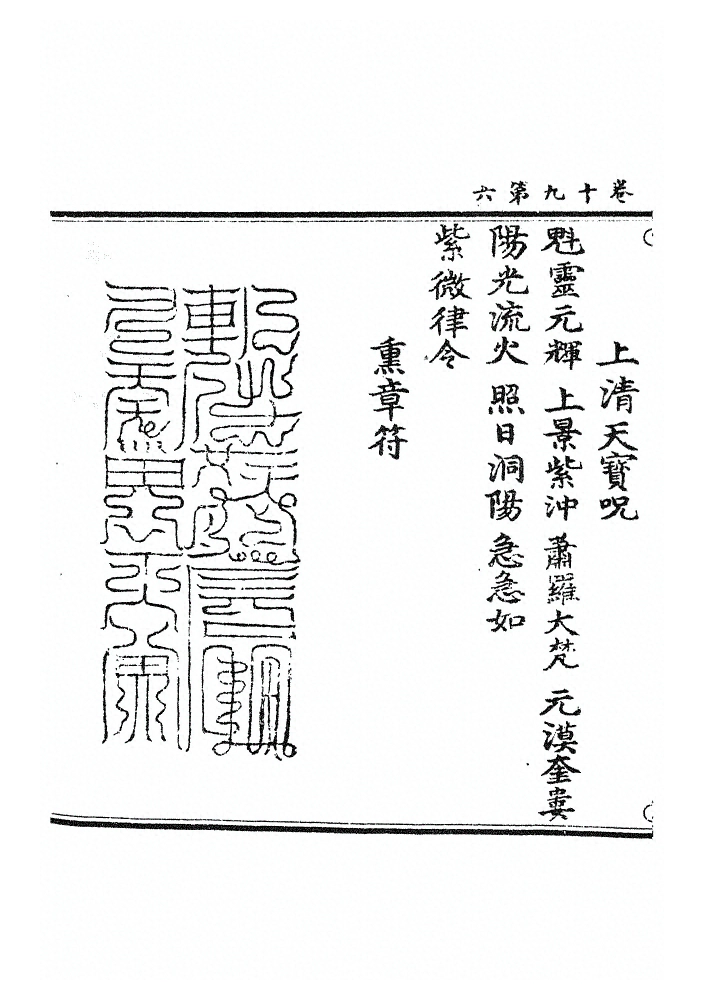 卷十九第六
上清天寶呪
魁靈元輝 上景紫沖 蕭羅大梵 元漠奎婁
陽光流火 照日洞陽 急急如
紫微律令
熏章符